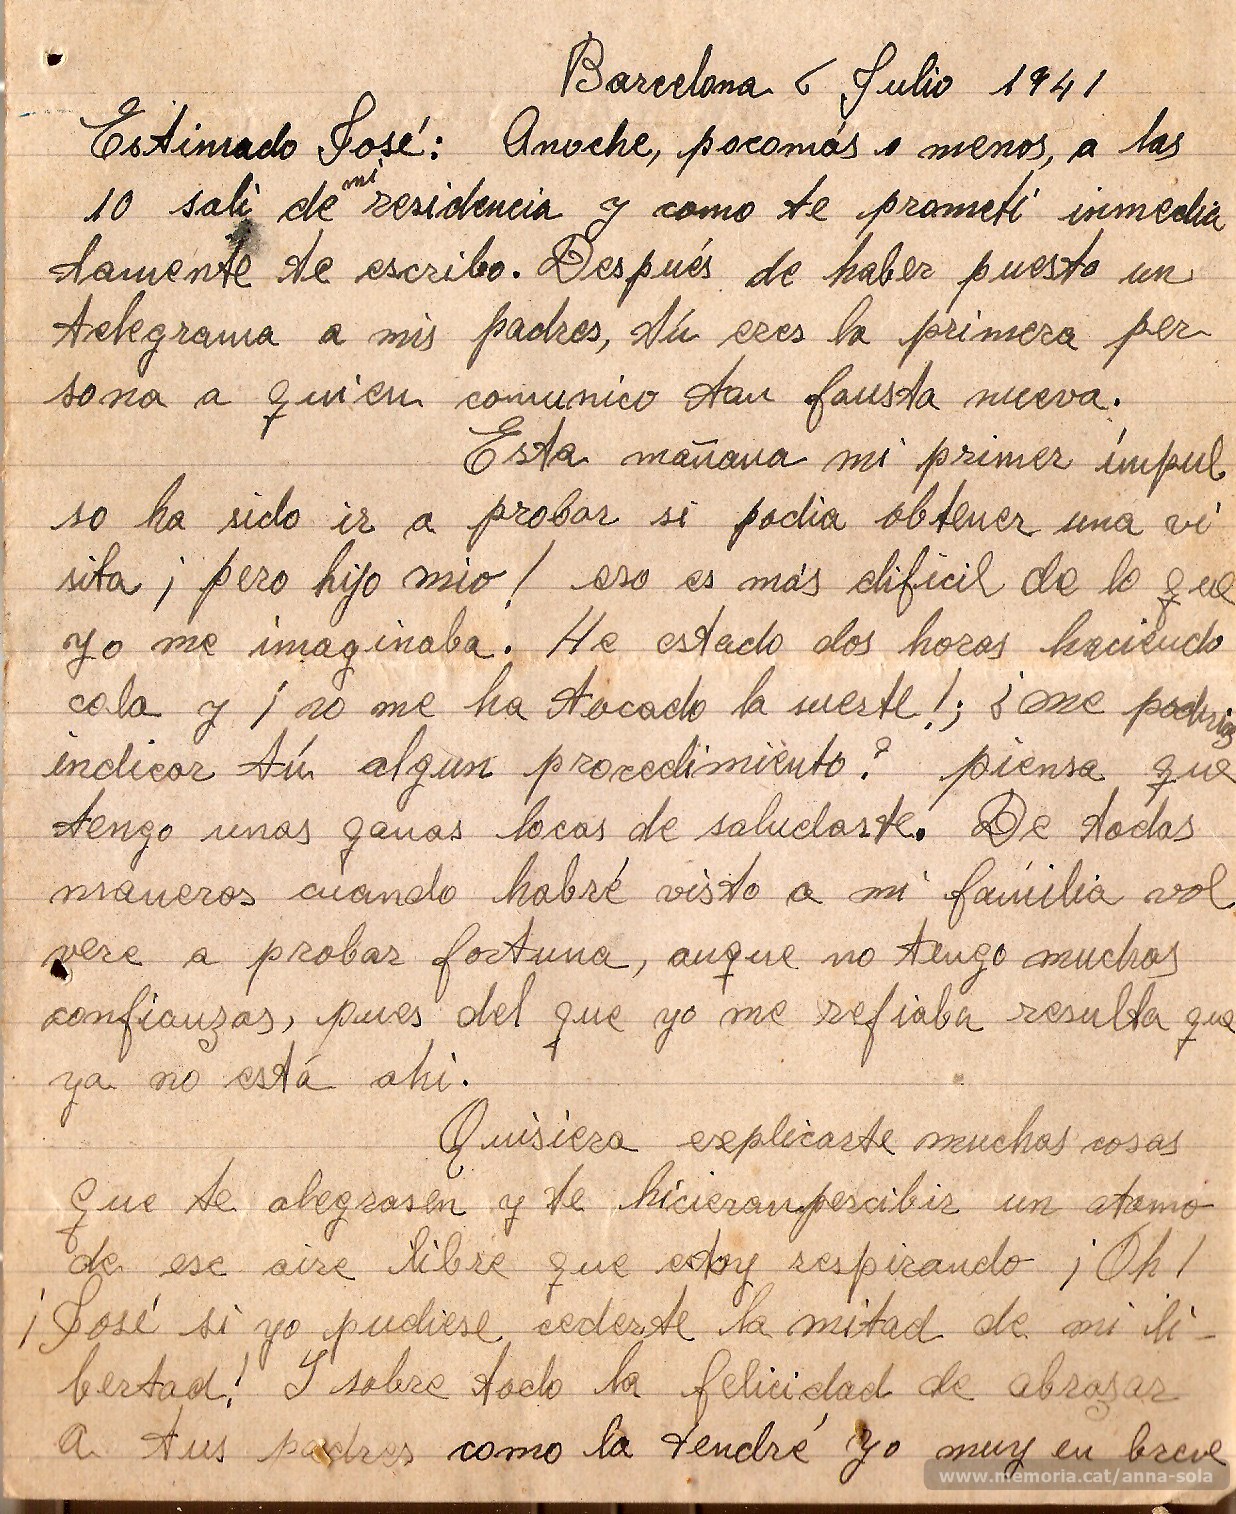 Barcelona 6 Julio 1941
Estimado José: Anoche, pocomás o menos, a las
10 sali de mi residencia y como te prometí inmedia
tamente te escribo. Después de haber puesto un
telegrama a mis padres, tú eres la primera per
sona a quien comunico tan fausta nueva.
Esta mañana mi primer ímpul
so ha sido ir a probar si podia obtener una vi
sita ¡pero hijo mio! eso es más dificil de lo que
yo me imaginaba. He estado dos horas haciendo
cola y ¡no me ha tocado la suerte!; ¿Me podrias
indicar tú algun procedimiento? piensa que
tengo unas ganas locas de saludarte. De todas
maneras cuando habré visto a mi família vol
vere a probar fortuna, auque no tengo muchas
confianzas, pues del que yo me refiaba resulta que
ya no está ahi.
Quisiera explicarte muchas cosas
que te alegrasen y te hicieran percibir un atomo
de ese aire libre que estoy respirando ¡Oh!
¡José si yo pudiese cederte la mitad de mi li-
bertad! Y sobre todo la felicidad de abrazar
a tus padres como la tendré yo muy en breve
www.memoria.cat/anna-sola